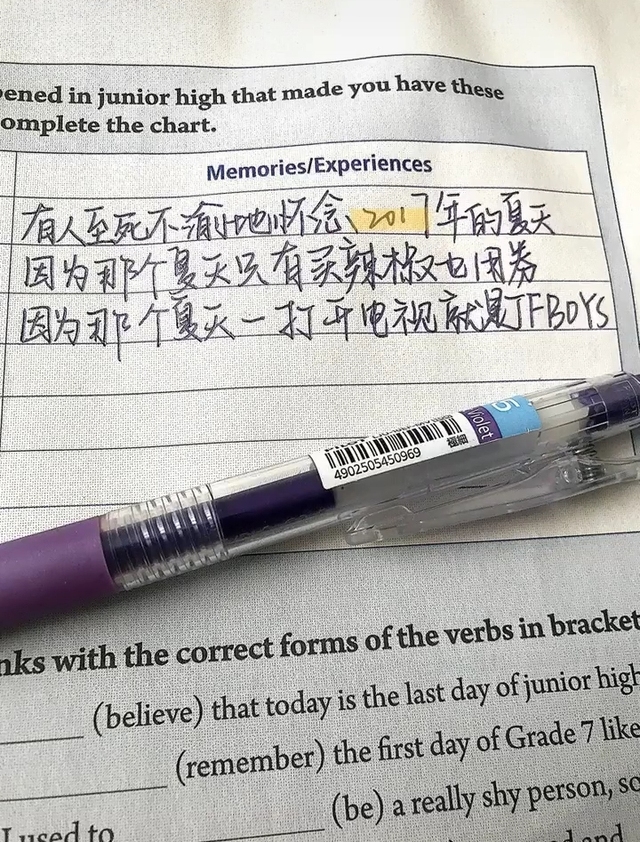 ened in junior high that made you have these
omplete the chart.
Memories/Experiences
有人至死不渝地怀念2017年的夏天
因为那个夏天只有买辣椒也用券
因为那个夏天一打开电视就是TFBOYS
5
Violet
極細
4902505450969
nks with the correct forms of the verbs in bracket
(believe) that today is the last day of junior high
(remember) the first day of Grade 7 like
(be) a really shy person, so
I used to
and